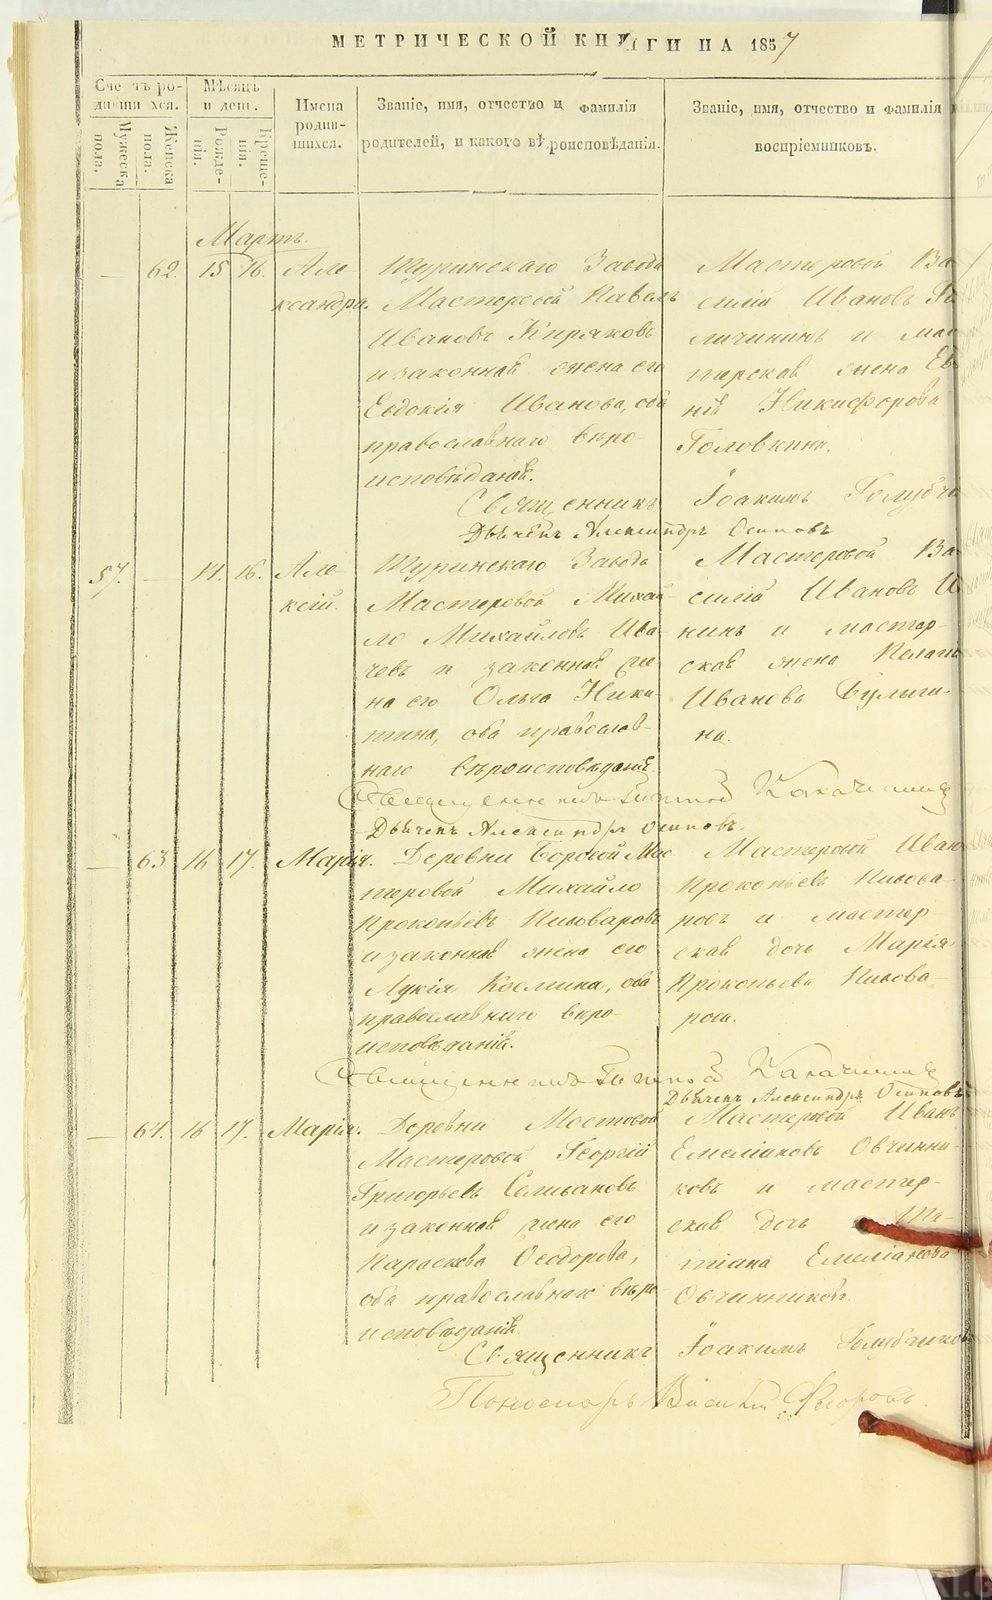 МЕТРИЧЕСКОЙ КНИГИ НА 1857
Счетъ родившихся.
Мужеска пола.
Женска пола.
Мѣсяцъ и день.
Рожденія.
Крещенія.
Имена родившихся.
Званіе, имя, отчество и фамилія
родителей, и какого вѣроисповѣданія.
Званіе, имя, отчество и фамилія
воспріемниковъ.
Мартъ.
— 62. 15 16. Але-
ксандра.
Туринскаго Завода
Мастеровой Павелъ
Ивановъ Киряковъ
и законная жена его
Евдокія Иванова, оба
православнаго вѣро-
исповѣданія.
Мастеровой Ва-
силій Ивановъ
и мас-
терская жена
Никифорова
Головкина.
Священникъ Іоакимъ
Дьячекъ Александръ Осиповъ
57. — 14. 16. Але-
ксій.
Туринскаго Завода
Мастеровой Михай-
ло Михайловъ Ива-
чевъ и законная же-
на его Ольга Ники-
тина, оба православ-
наго вѣроисповѣданія
Мастеровой Ва-
силій Ивановъ
и мастер-
ская жена Пелагія
Иванова Булыги-
на.
Священникъ
Дьячекъ Александръ Осиповъ.
— 63 16 17. Марія.
Деревни Боровой Мас-
теровой Михайло
Прокопьевъ Пивоваровъ
и законная жена его
Лукія Козмина, оба
православнаго вѣро-
исповѣданія.
Мастеровой Иванъ
Прокопьевъ Пивова-
ровъ и мастер-
ская дочь Марія
Прокопьева Пивова-
рова.
Священникъ
Дьячекъ Александръ Осиповъ
— 64. 16 17. Марія.
Деревни Мостовой
Мастеровой Георгій
Григорьевъ Селивановъ
и законная жена его
Параскева Ѳеодорова,
оба православнаго вѣро-
исповѣданія.
Мастеровой Иванъ
Емеліановъ Овчинни-
ковъ и мастер-
ская дочь Та-
тіана Емеліанова
Овчинникова.
Священникъ Іоакимъ Голубчиковъ
Пономарь Василій Флоровъ.
METRIKI.GASO-URAL.RU